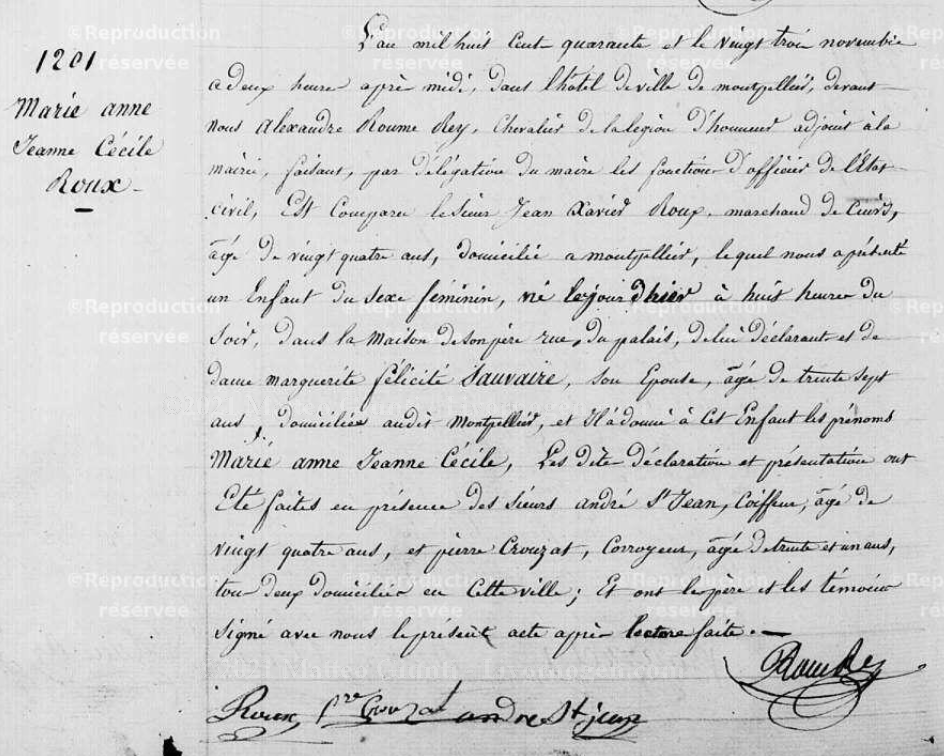 1201
Marie anne
Jeanne Cécile
Roux -
L'an mil huit cent quarante et le vingt trois novembre
a deux heures après midi, dans l'hôtel de ville de montpellier, devant
nous Alexandre Roume Rey, Chevalier de la légion d'honneur adjoint à la
mairie, faisant, par délégation du maire les fonctions d'officier de l'État
civil, Est Comparu le sieur Jean Xavier Roux, marchand de Cuirs,
âgé de vingt quatre ans, domicilié a montpellier, lequel nous a présenté
un Enfant du sexe féminin, né le jour d'hier à huit heures du
soir, dans la maison de son père rue, du palais, de lui déclarant et de
dame marguerite félicité Sauvaire, son Epouse, âgé de trente sept
ans, domiciliée audit Montpellier, et Il a donné à Cet Enfant les prénoms
Marie anne Jeanne Cécile, Les dites déclaration et présentation ont
Eté faites en présence des sieurs andré St Jean, Coiffeur, âgé de
vingt quatre ans, et pierre Crouzat, Corroyeur, âgé de trente et un ans,
tous deux domiciliés en Cette ville ; Et ont le père et les témoins
signé avec nous le présent acte après lecture faite. —
Roume Rey
Roux, Pre Crouzat andre St jean
©Reproduction réservée